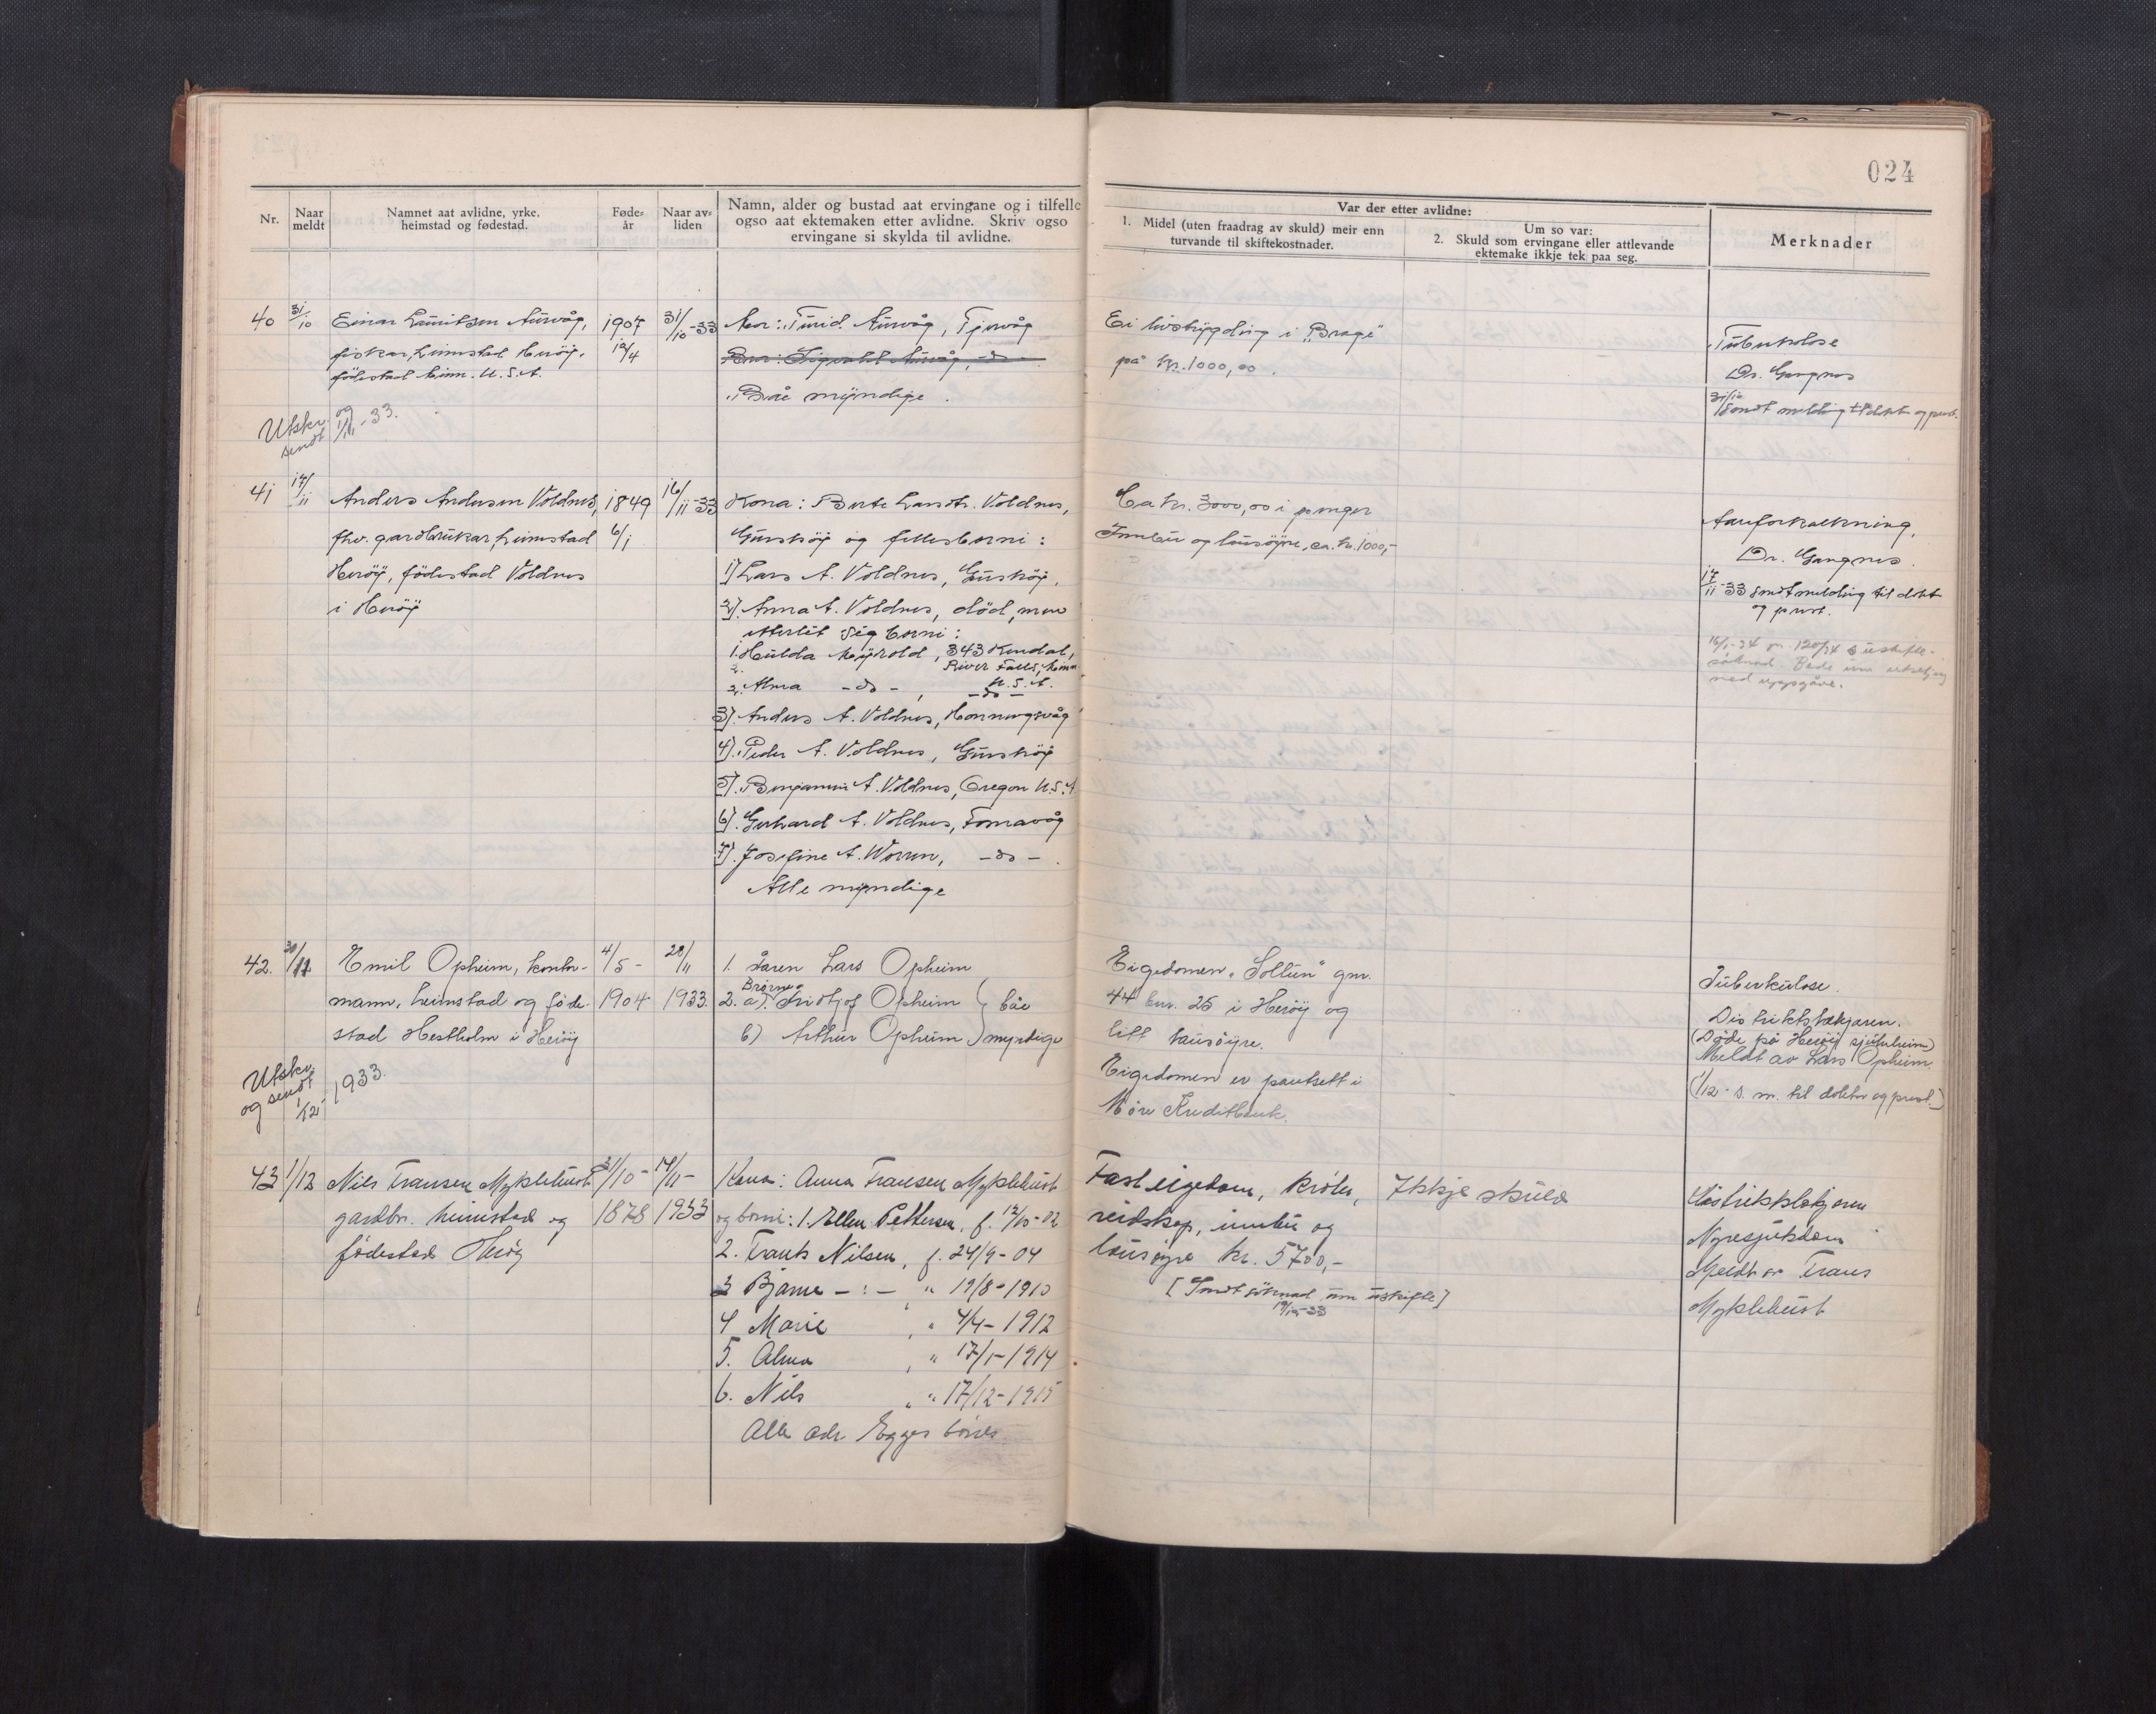 024
Nr.
Naar meldt
Namnet aat avlidne, yrke, heimstad og fødestad.
Føde- år
Naar av- liden
Namn, alder og bustad aat ervingane og i tilfelle
ogso aat ektemaken etter avlidne. Skriv ogso
ervingane si skylda til avlidne.
Var der etter avlidne:
1. Midel (uten fraadrag av skuld) meir enn
turvande til skiftekostnader.
Um so var:
2. Skuld som ervingane eller attlevande
ektemake ikkje tek paa seg.
Merknader
40 31/10 Einar Lauritsen Aurvåg, 1907 31/10-33 Mor: Turid Aurvåg, Tjørvåg
fiskar, heimstad Herøy, 12/4 Bror: Sigvald Aurvåg, -do-
fødestad Minn. U.S.A.
Båe myndige.
Utskr. og
sendt 1/11-33.
Ei livstrygding i "Brage"
på kr. 1000,00.
Tuberkolose
Dr. Gangnes
31/10 Sendt melding til dokt. og prest.
41 17/11 Anders Andersen Voldnes, 1849 16/11-33 Kona: Berte Larsdtr. Voldnes,
fhv. gardbrukar, heimstad 6/1 Gurskøy og fellesborni:
Herøy, fødestad Voldnes 1) Lars A. Voldnes, Gurskøy,
i Herøy 2) Anna A. Voldnes, död, men
etterlét seg borni:
1. Hulda , 343 Kendal,
River Falls,
U.S.A.
2. Alma -do-, -do-
3). Anders A. Voldnes, Honningsvåg
4). Peder A. Voldnes, Gurskøy
5). Benjamin A. Voldnes, Oregon U.S.A
6). Gerhard A. Voldnes, Fosnavåg
7). Josefine A. , -do-.
Alle myndige
Ca kr. 3000,00 i pengar
Innbu og lausøyre, ca. kr. 1000,-
Aareforkalkning,
Dr. Gangnes.
17/11-33 sendt melding til dokt.
og prest.
16/1-34 120/34 s uskifte-
søknad. Bede um utsetjing
med uppgåve.
42. 30/11 Emil Opheim, kontor- 4/5- 28/11 1. Faren Lars Opheim
mann, heimstad og føde- 1904 1933. Brørne
2. a). Fridtjof Opheim } båe
stad Hestholm i Herøy b) Arthur Opheim } myndige
Utskr.
og sendt
1/12 1933.
Eigedomen "Soltun" gnr.
44 bnr. 25 i Herøy og
litt lausøyre.
Eigedomen er pantsett i
Møre Kreditbank.
Tuberkulose.
Distriktslækjaren.
(Døde på Herøy sjukeheim)
Meldt av Lars Opheim.
(1/12- s. m. til doktor og prest.)
43 1/12 Nils Fransen Myklebust 31/10- 14/11- Kona: Anna Fransen Myklebust
gardbr. heimstad og 1878 1933 og borni: 1. Ellen Pettersen, f. 12/10-02
fødestad Herøy 2. Frants Nilsen, f. 24/9-04
3 Bjarne -:- " 19/8-1910
4 Marie , " 4/4-1912
5. Alma , " 17/1-1914
6. Nils , " 17/12-1915
Alle adr. Eggesbønes
Fast eigedom, krøter,
reidskap, innbu og
lausøyre kr. 5700,-
[Sendt söknad um uskifte]
19/12-33
Ikkje skuld
Distriktslækjaren
Nyresjukdom
Meldt av Frans
Myklebust